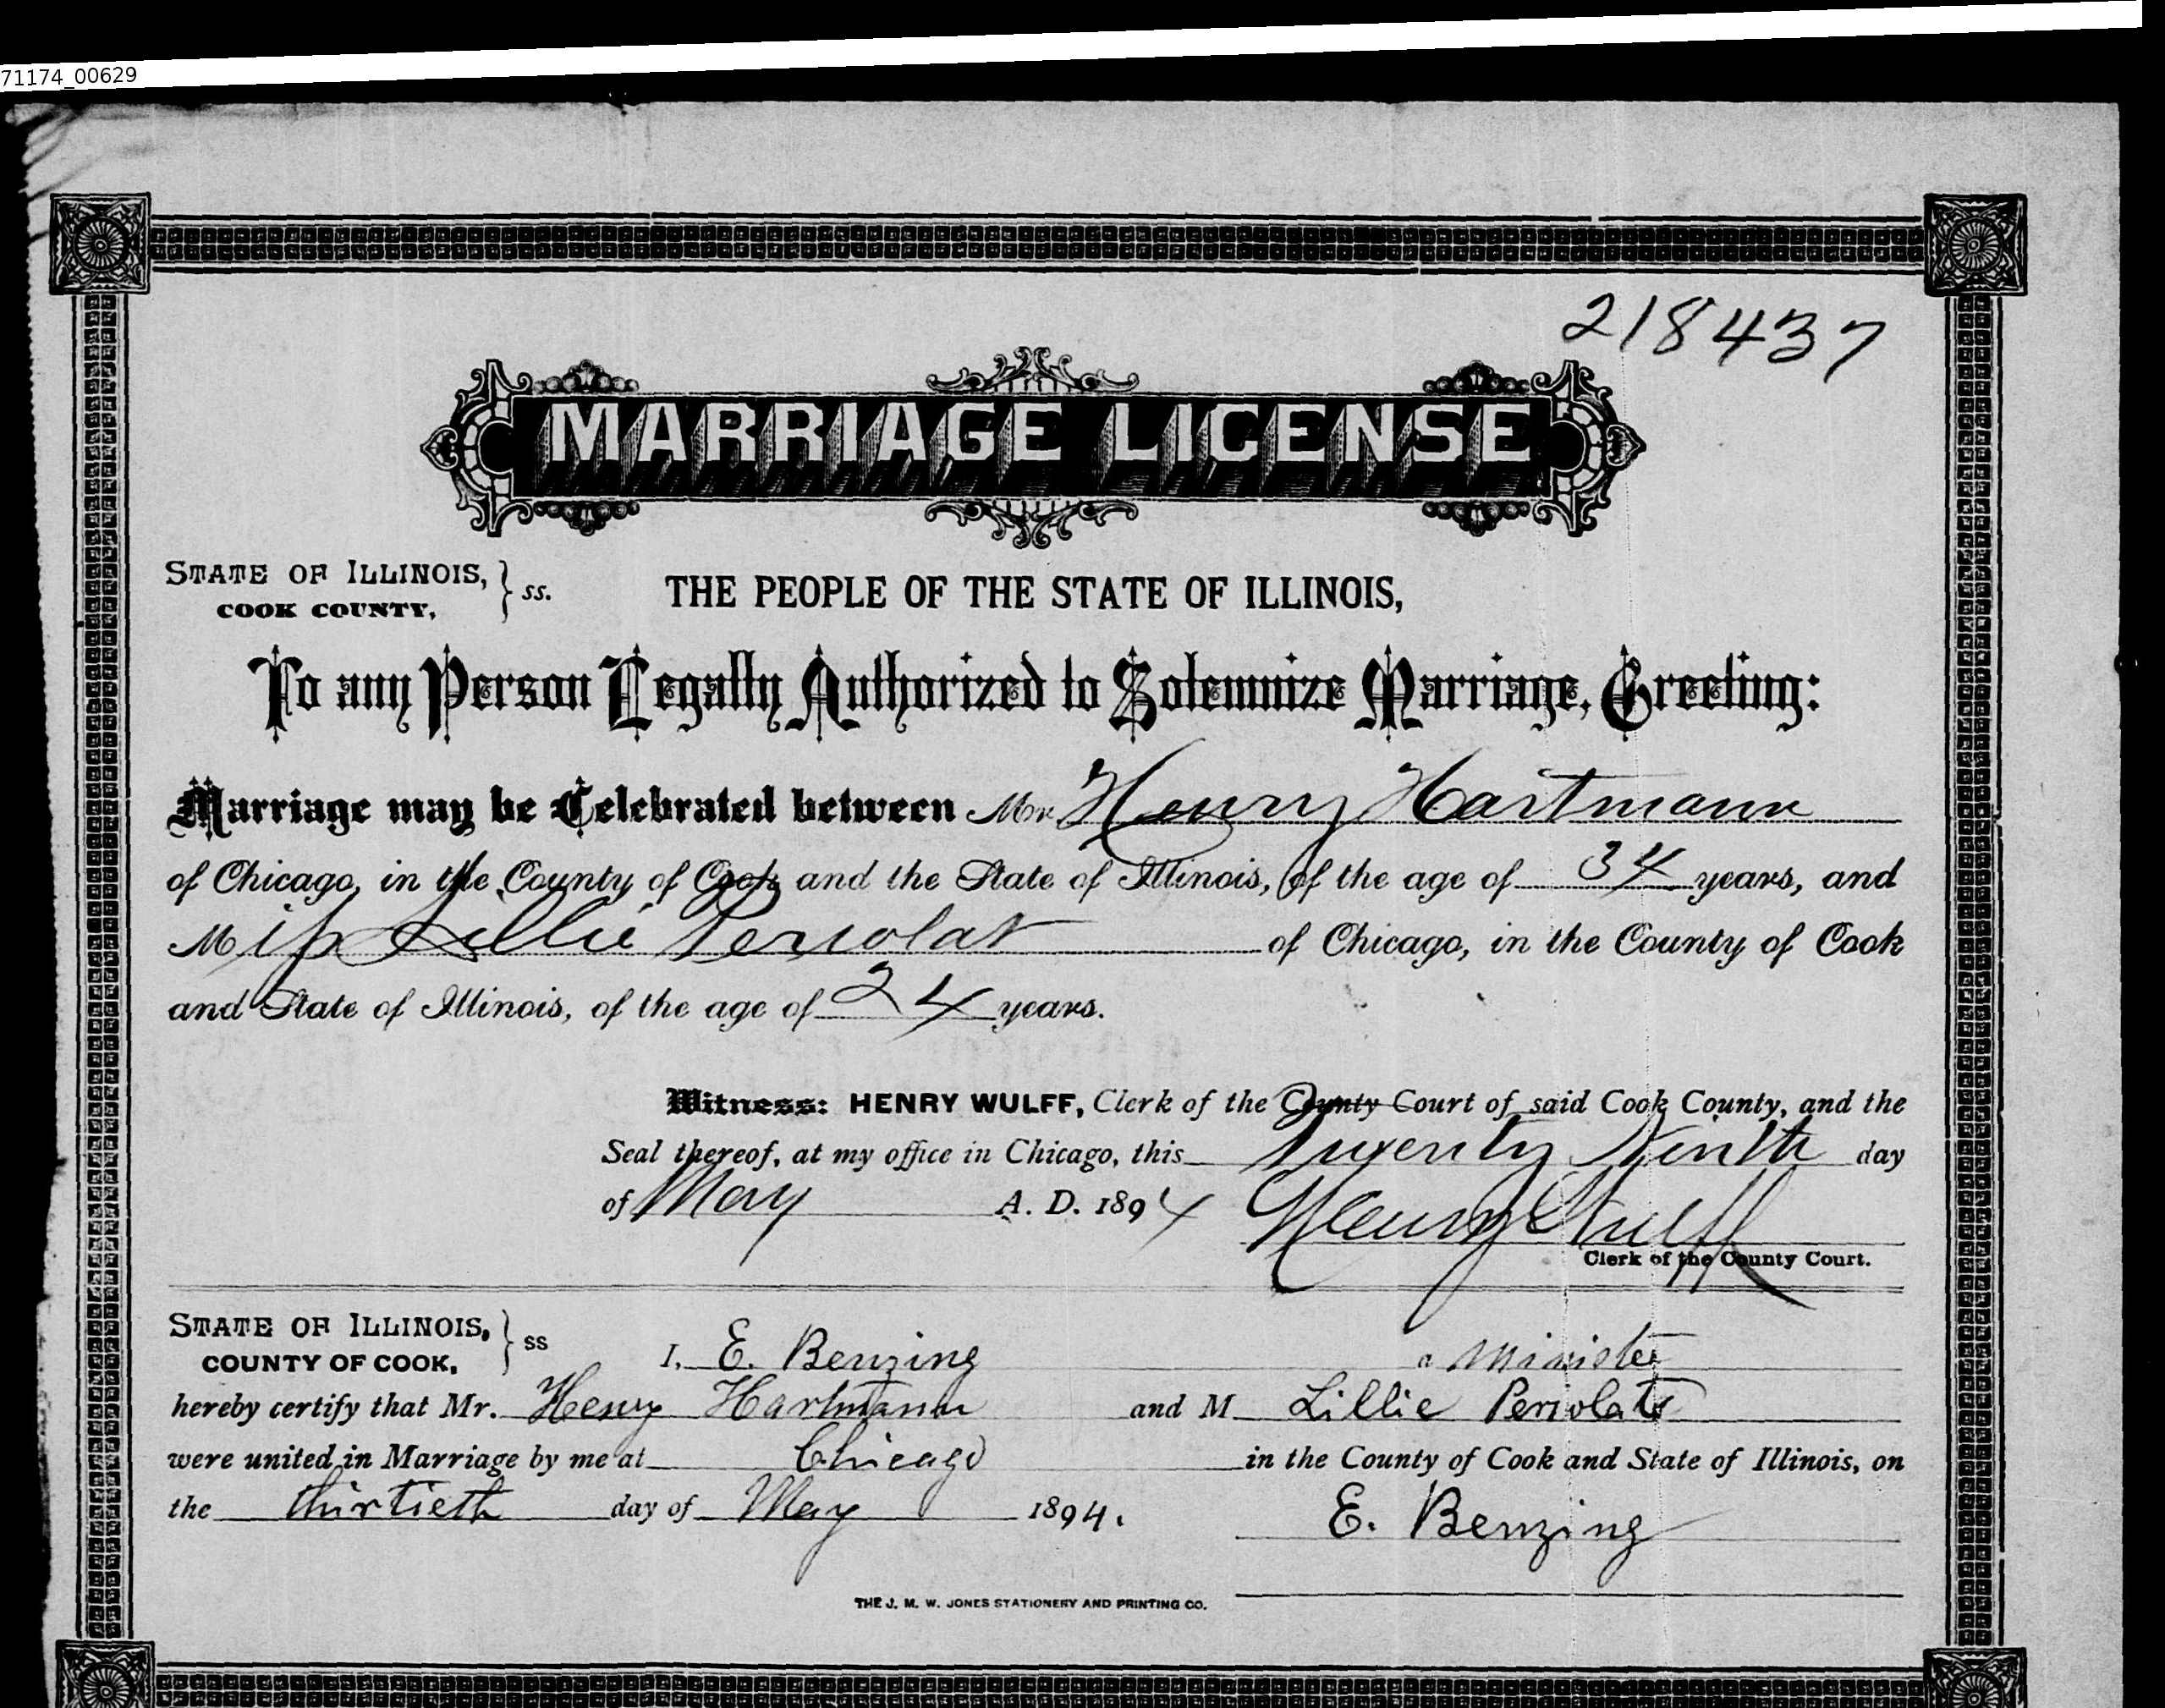 71174_00629
218437
MARRIAGE LICENSE
STATE OF ILLINOIS, } ss.
COOK COUNTY,
THE PEOPLE OF THE STATE OF ILLINOIS,
To any Person Legally Authorized to Solemnize Marriage, Greeting:
Marriage may be Celebrated between Mr Henry Hartmann
of Chicago, in the County of Cook and the State of Illinois, of the age of 34 years, and
Miss Lillie Periolat of Chicago, in the County of Cook
and State of Illinois, of the age of 24 years.
Witness: HENRY WULFF, Clerk of the County Court of said Cook County, and the
Seal thereof, at my office in Chicago, this Twenty Ninth day
of May A. D. 1894 Henry Wulff
Clerk of the County Court.
STATE OF ILLINOIS, } ss
COUNTY OF COOK,
I, E. Benzing a minister
hereby certify that Mr. Henry Hartmann and M Lillie Periolat
were united in Marriage by me at Chicago in the County of Cook and State of Illinois, on
the thirtieth day of May 1894.
E. Benzing
THE J. M. W. JONES STATIONERY AND PRINTING CO.